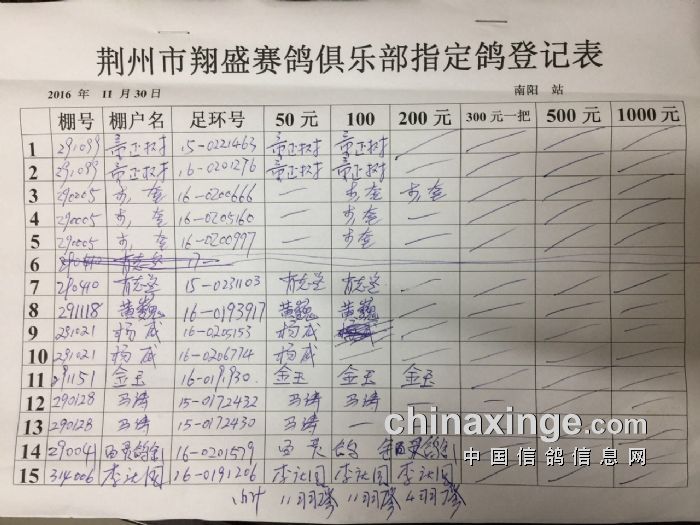 荆州市翔盛赛鸽俱乐部指定鸽登记表
2016 年 11 月 30 日 南阳 站
棚号 棚户名 足环号 50 元 100 200 元 300 元一把 500 元 1000 元
1 291099 童正树 15-0221463 童正树 童正树
2 291099 童正树 16-0201276 童正树 童正树
3 290005 16-0200666 —
4 290005 16-0205160 — —
5 290005 16-0200997 — —
6 17-
7 290440 15-0231103
8 291118 黄巍 16-0193917 黄巍 黄巍
9 291021 杨威 16-0205153 杨威
10 291021 杨威 16-0206774 杨威
11 291151 金玉 金玉 金玉 金玉
12 290128 马涛 15-0172432 马涛 马涛 —
13 290128 马涛 15-0172430 马涛 —
14 290041 16-0201579
15 314006 李社国 16-0191206 李社国 李社国 李社国
小计 11羽 11羽 4羽
chinaxinge.com
中国信鸽信息网